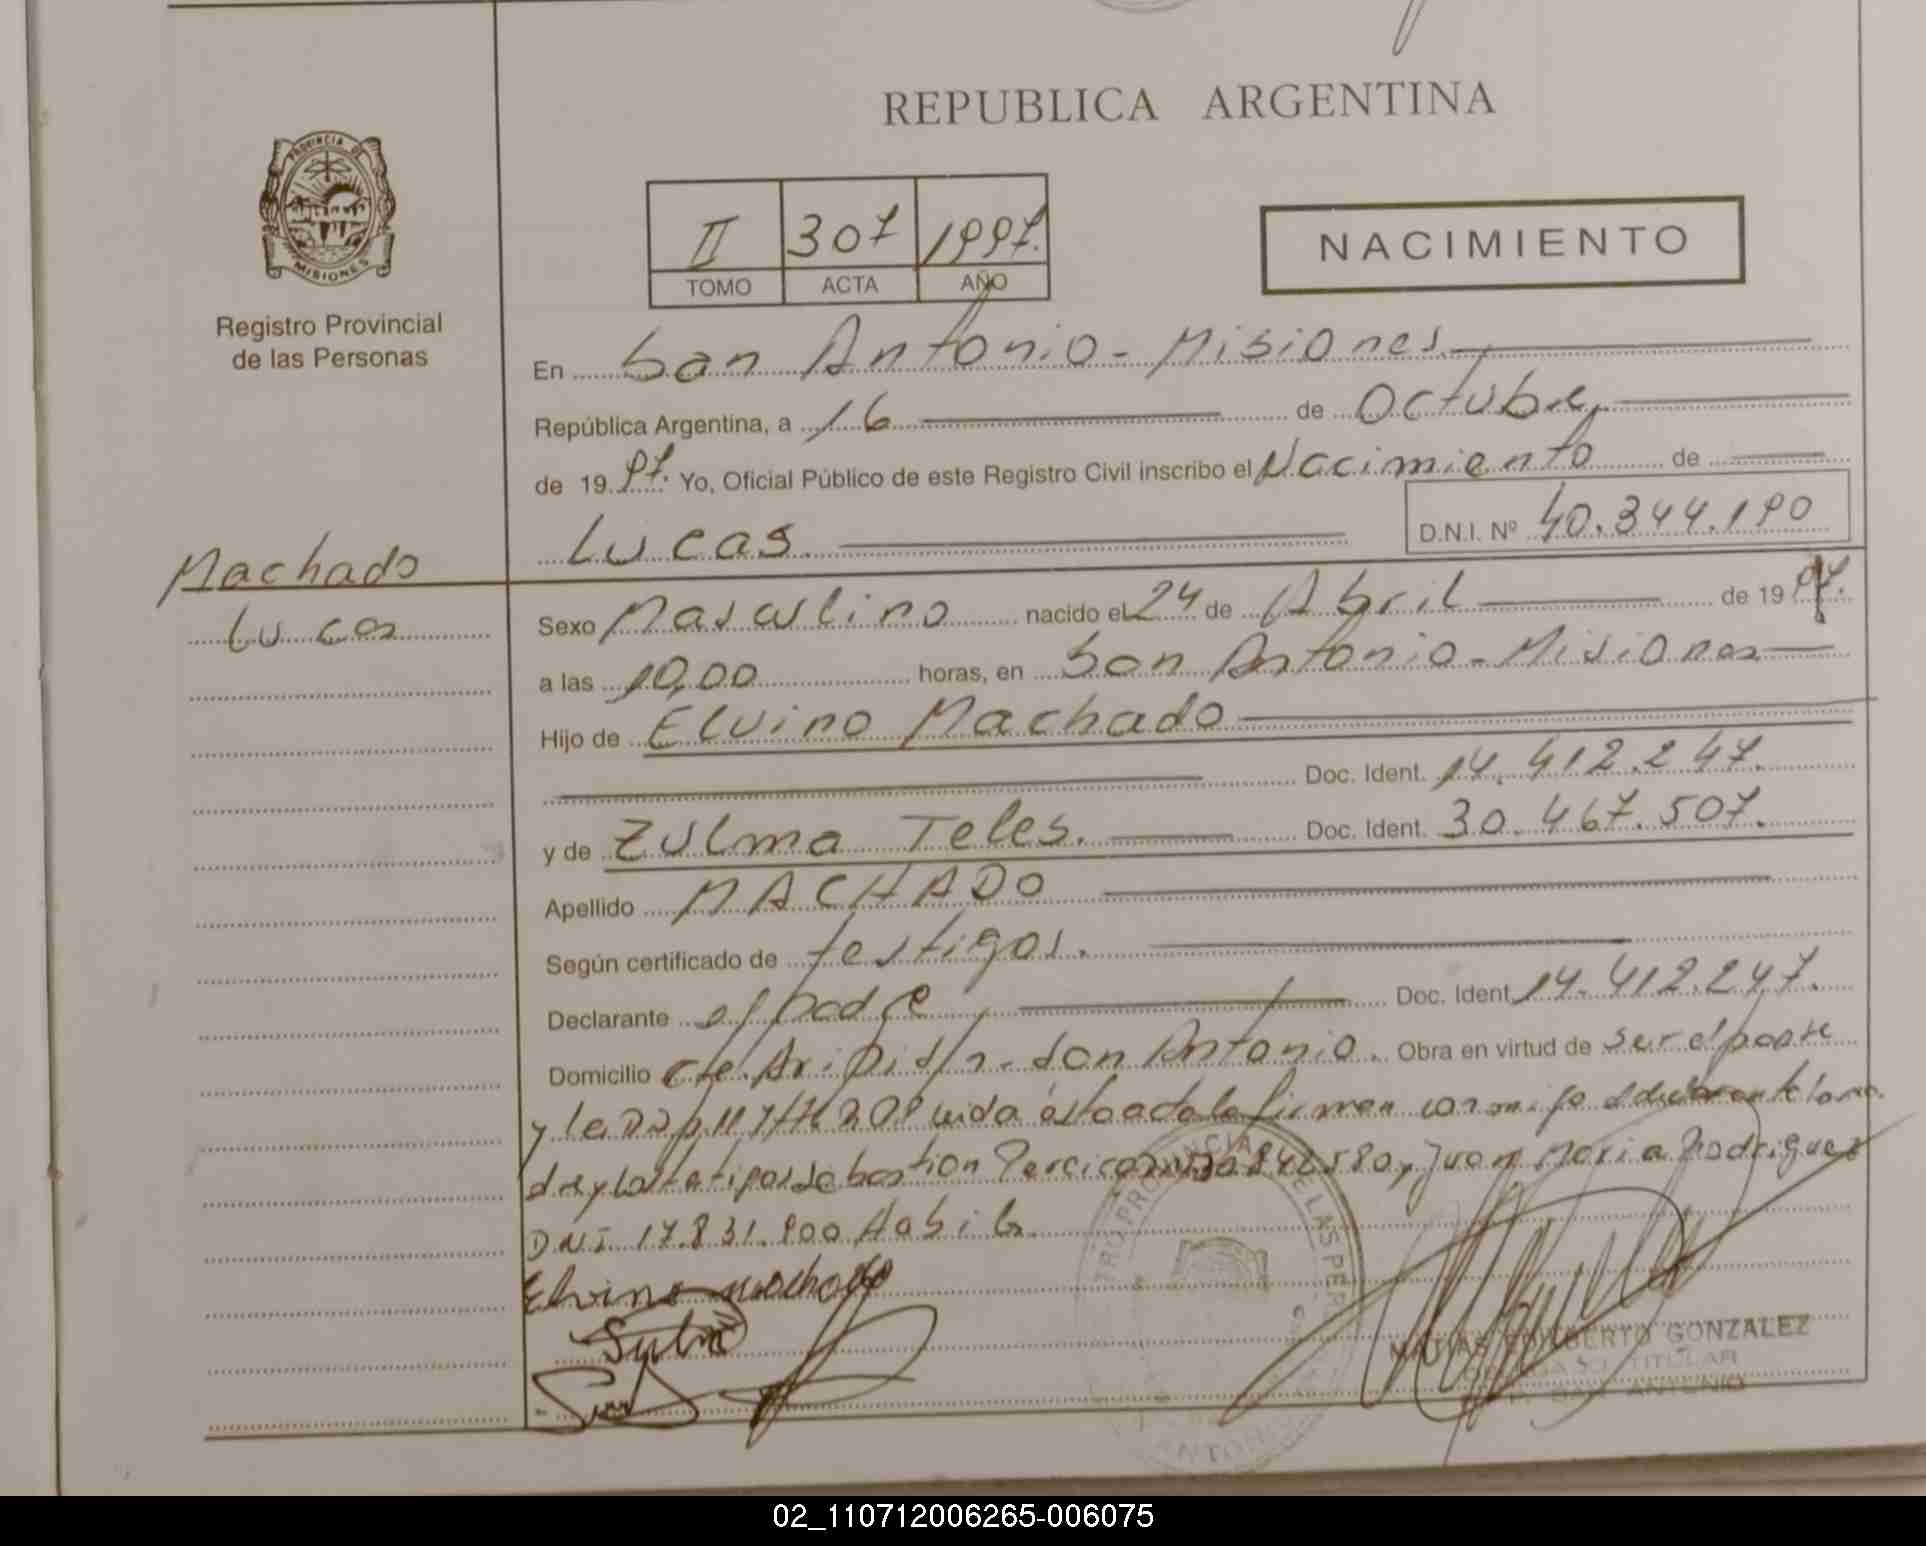 REPUBLICA ARGENTINA
PROVINCIA DE
MISIONES
Registro Provincial
de las Personas
II 307 1997.
TOMO ACTA AÑO
NACIMIENTO
En San Antonio - Misiones
República Argentina, a 16 de Octubre,
de 19 97. Yo, Oficial Público de este Registro Civil inscribo el Nacimiento de
Lucas D.N.I. Nº 40.344.190
Machado
Lucas
Sexo Masculino nacido el 24 de Abril de 19 97.
a las 10,00 horas, en San Antonio - Misiones
Hijo de Elvino Machado
Doc. Ident. 14.412.247.
y de Zulma Teles. Doc. Ident. 30.467.507.
Apellido MACHADO
Según certificado de testigos.
Declarante el padre Doc. Ident. 14.412.247.
Domicilio San Antonio. Obra en virtud de ser el padre
y acta la firman conmigo el declarante la ma
dre y los testigos Juan Maria Rodriguez
DNI 17.831.900 Habil
Elvino Machado
MATIAS EDILBERTO GONZALEZ
TITULAR
SAN ANTONIO
02_110712006265-006075